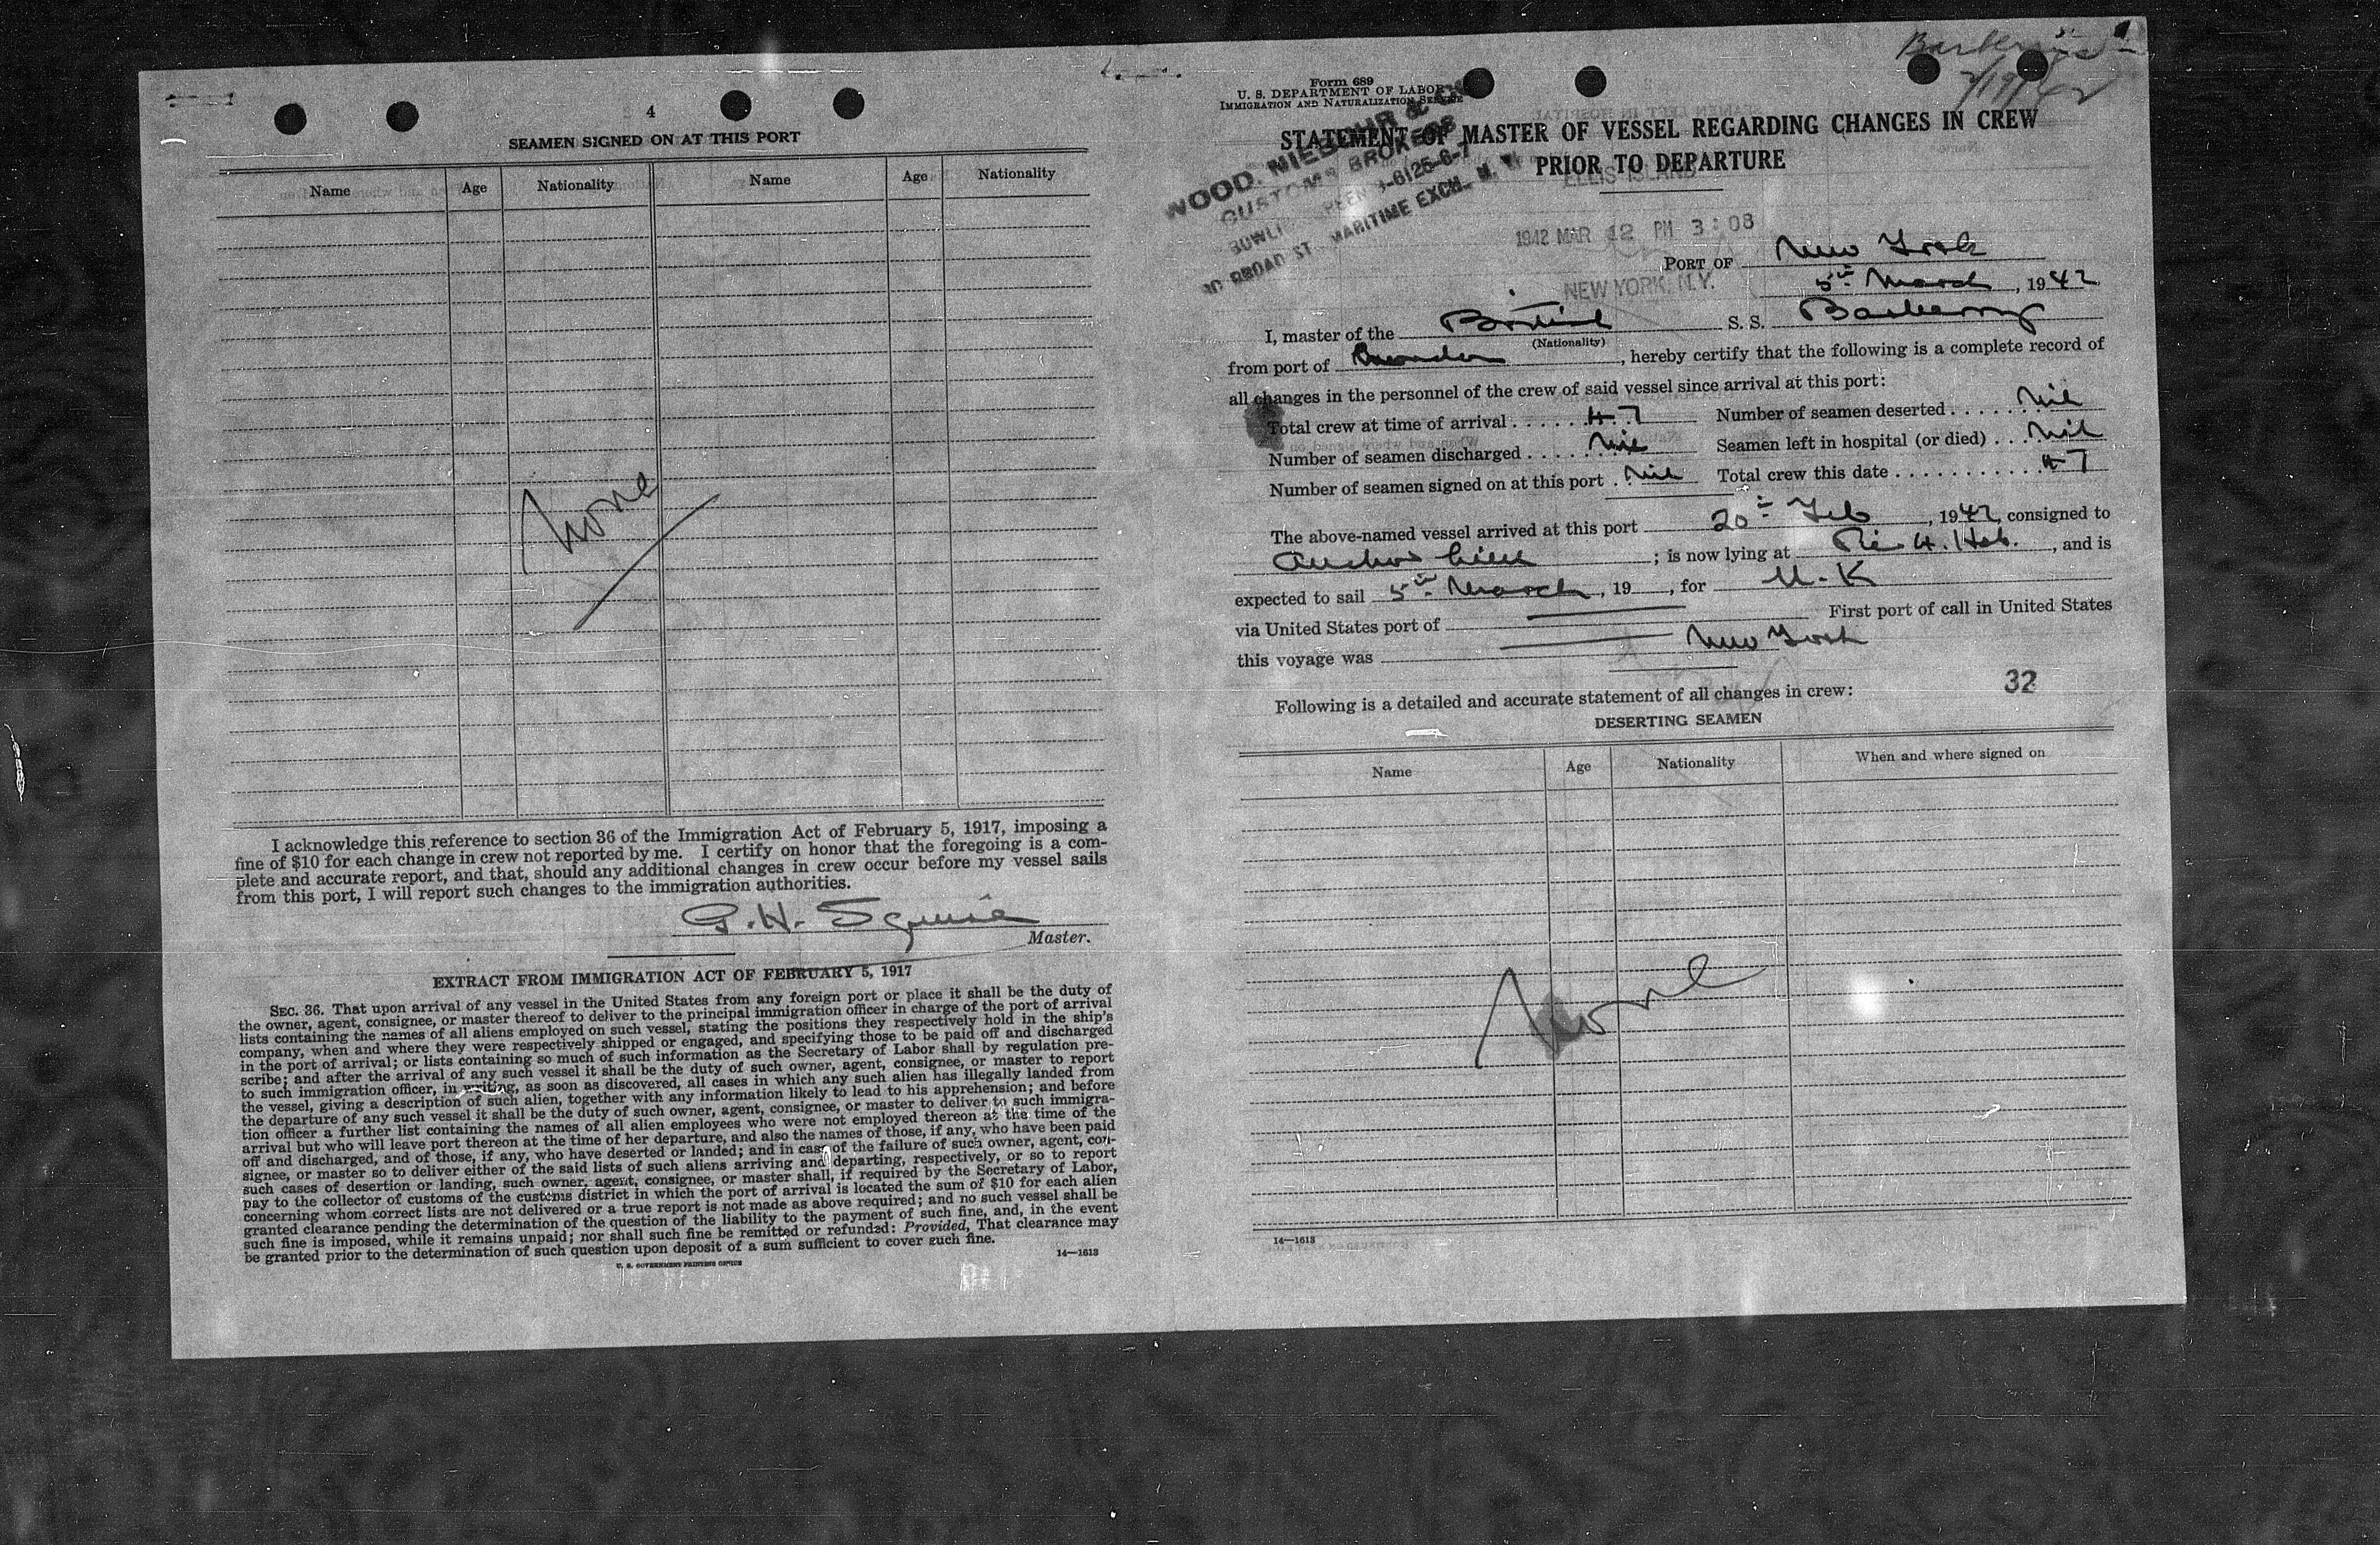 4
SEAMEN SIGNED ON AT THIS PORT
Name Age Nationality Name Age Nationality
None
I acknowledge this reference to section 36 of the Immigration Act of February 5, 1917, imposing a
fine of $10 for each change in crew not reported by me. I certify on honor that the foregoing is a com-
plete and accurate report, and that, should any additional changes in crew occur before my vessel sails
from this port, I will report such changes to the immigration authorities.
G. H. Squire
Master.
EXTRACT FROM IMMIGRATION ACT OF FEBRUARY 5, 1917
SEC. 36. That upon arrival of any vessel in the United States from any foreign port or place it shall be the duty of
the owner, agent, consignee, or master thereof to deliver to the principal immigration officer in charge of the port of arrival
lists containing the names of all aliens employed on such vessel, stating the positions they respectively hold in the ship's
company, when and where they were respectively shipped or engaged, and specifying those to be paid off and discharged
in the port of arrival; or lists containing so much of such information as the Secretary of Labor shall by regulation pre-
scribe; and after the arrival of any such vessel it shall be the duty of such owner, agent, consignee, or master to report
to such immigration officer, in writing, as soon as discovered, all cases in which any such alien has illegally landed from
the vessel, giving a description of such alien, together with any information likely to lead to his apprehension; and before
the departure of any such vessel it shall be the duty of such owner, agent, consignee, or master to deliver to such immigra-
tion officer a further list containing the names of all alien employees who were not employed thereon at the time of the
arrival but who will leave port thereon at the time of her departure, and also the names of those, if any, who have been paid
off and discharged, and of those, if any, who have deserted or landed; and in case of the failure of such owner, agent, con-
signee, or master so to deliver either of the said lists of such aliens arriving and departing, respectively, or so to report
such cases of desertion or landing, such owner, agent, consignee, or master shall, if required by the Secretary of Labor,
pay to the collector of customs of the customs district in which the port of arrival is located the sum of $10 for each alien
concerning whom correct lists are not delivered or a true report is not made as above required; and no such vessel shall be
granted clearance pending the determination of the question of the liability to the payment of such fine, and, in the event
such fine is imposed, while it remains unpaid; nor shall such fine be remitted or refunded: Provided, That clearance may
be granted prior to the determination of such question upon deposit of a sum sufficient to cover such fine.
14—1613
U. S. GOVERNMENT PRINTING OFFICE
Form 689
U. S. DEPARTMENT OF LABOR
IMMIGRATION AND NATURALIZATION SERVICE
STATEMENT OF MASTER OF VESSEL REGARDING CHANGES IN CREW
PRIOR TO DEPARTURE
WOOD, NIEBUHR &
CUSTOMS BROKERS
BROAD ST. MARITIME EXCH. N. Y.
ELLIS ISLAND
1942 MAR 12 PM 3:08
NEW YORK, N.Y.
PORT OF New York
5th March, 1942
I, master of the British S. S. Barberry
(Nationality)
from port of , hereby certify that the following is a complete record of
all changes in the personnel of the crew of said vessel since arrival at this port:
Total crew at time of arrival 47 Number of seamen deserted Nil
Number of seamen discharged Nil Seamen left in hospital (or died) Nil
Number of seamen signed on at this port Nil Total crew this date 47
The above-named vessel arrived at this port 20th Feb, 1942, consigned to
Anchor Line; is now lying at Pier 4. Hob., and is
expected to sail 5th March, 19 , for U.K
via United States port of First port of call in United States
this voyage was New York
Following is a detailed and accurate statement of all changes in crew:
32
DESERTING SEAMEN
Name Age Nationality When and where signed on
None
14—1613